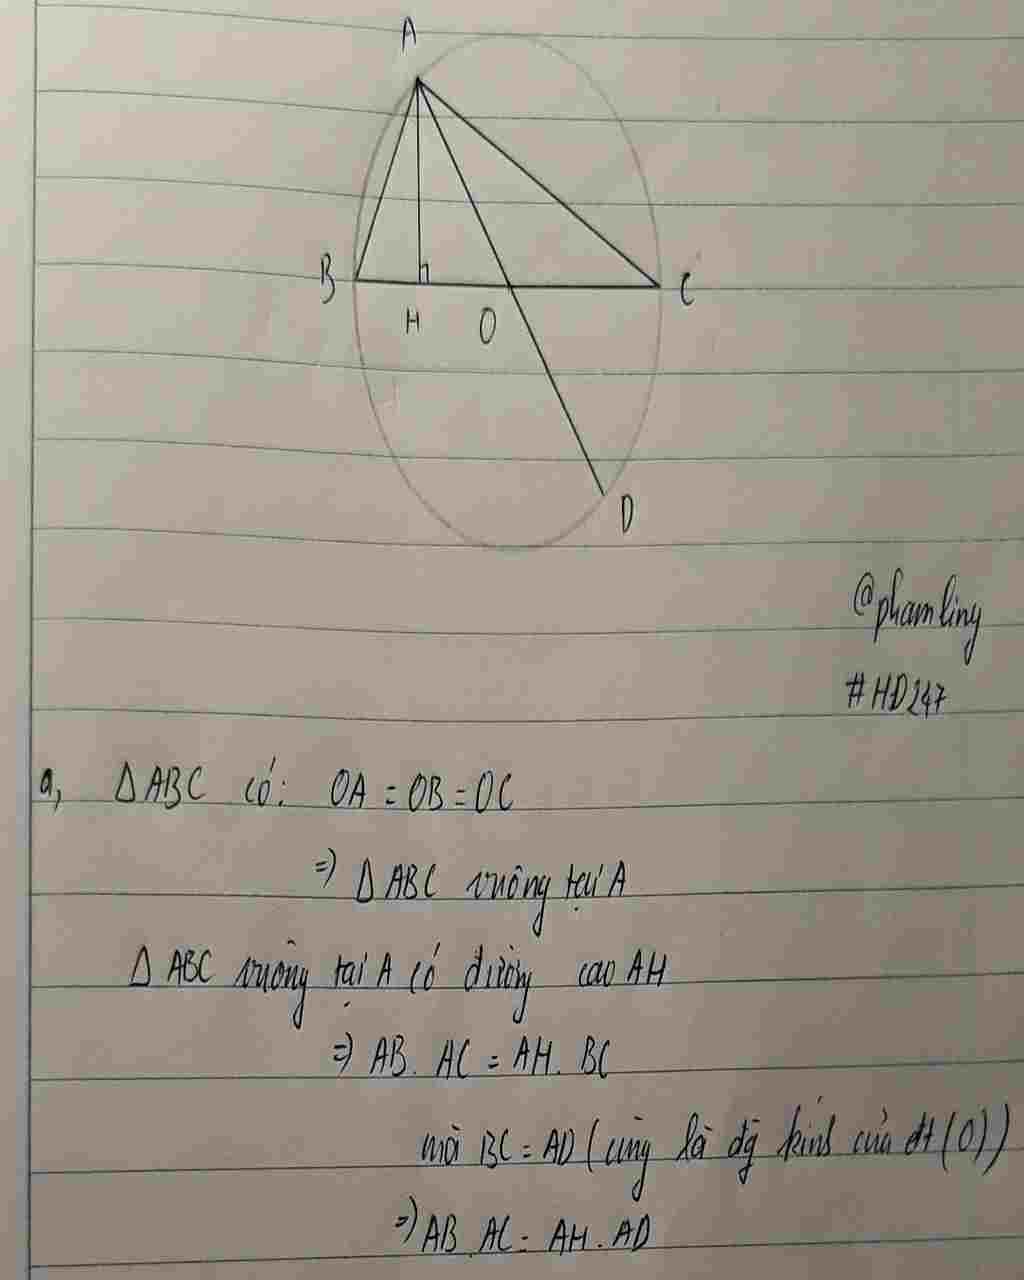 A
B
H
O
C
D
@phamling
#HD247
a, Δ ABC có: OA = OB = OC
=) Δ ABC vuông tại A
Δ ABC vuông tại A có đường cao AH
=) AB. AC = AH. BC
mà BC = AD (cùng là đg kính của đt (O))
=) AB. AC = AH. AD